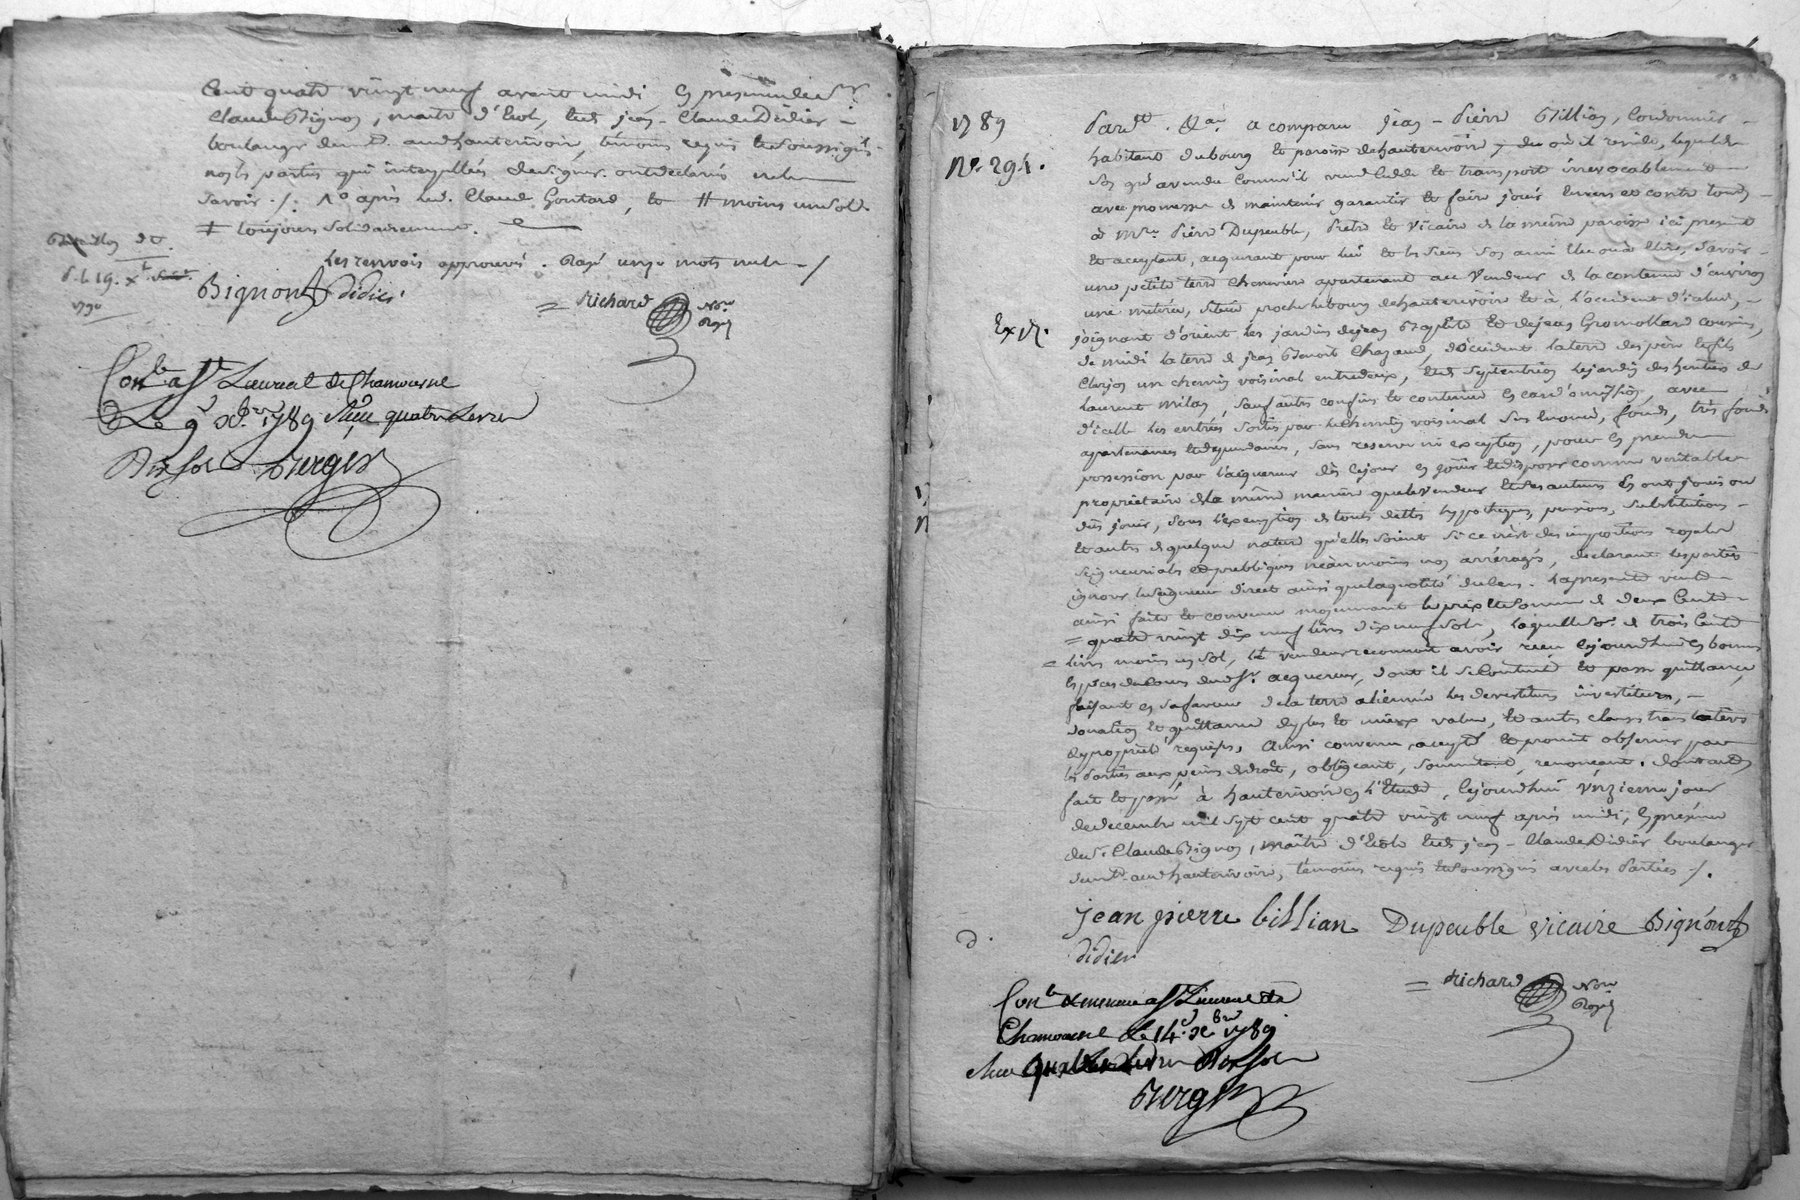 Cent quatre vingt neuf avant midi En presence de Sr
Claude Bignon, maitre d'Ecol, Et de jean-Claude Didier
boulanger dem.t aud hauterivoire, temoins requis Et soussignés
non les parties qui interpellées de signer ont declaré ne le
savoir ./. après led. Claude Goutard, Et # moins un sol
# toujours solidairement.
Les renvois approuvés. Rayé onze mots nuls ./
1790
Bignon didier
= Richard Nore Royal
Conlé a St Laurent de Chamousset
Le 9 Xbre 1789 Reçu quatre Livres
Dix sols Berger
1789
No. 294.
Pardt. Etc. a comparu jean-Pierre Billian, Cordonnier
habitant du bourg Et paroisse de hauterivoire, du où il reside, lequel de
son gré a vendu comme il vend Cedde Et transporte irrevocablement
avec promesse de maintenir garantir Et faire jouir Envers et contre tous
à Mre. Pierre Dupeuble, Prêtre Et Vicaire de la même paroisse ici present
Et acceptant, acquerant pour lui Et les siens son ami Elu ou à Elire, Savoir
une petite terre Cheneviere apartenant au Vendeur de la contenue d'environ
une , située proche le bourg de hauterivoire Et à L'occident d'icelui,
Ex.
joignant d'orient les jardins de jean Baptiste Et de jean Gromollard cousins,
de midi la terre de jean Benoit Chazaud, d'occident la terre des père Et fils
Clarjon un chemin voisinal entre deux, Et de Septentrion le jardin des heritiers de
Laurent Milan, sauf autres confins Et contenue En cas d'omission, avec
d'icelle les entrées sorties par le chemin voisinal sus Enoncé, fonds, très fonds
apartenances Et dependances, sans reserve ni exception, pour En prendre
possession par l'acquereur dès ce jour En jouir Et disposer comme veritable
propriétaire de la même manière que le vendeur Et ses auteurs En ont joui ou
dû jouir, sous l'exemption de toutes dettes hypotheques, pensions, substitutions
Et autres de quelque nature qu'elles soient si ce n'est des impositions royales
seigneuriales Et publiques neanmoins non arréragés, declarant les parties
ignorer le seigneur direct ainsi que la quotité du Cens. La presente vente
ainsi faite Et convenue moyennant le prix Et somme de deux Cents
= quatre vingt dix neuf livres dix neuf sols, laquelle so. de trois Cents
= livres moins un sol, le vendeur reconnoit avoir reçu cejourd'hui En bonnes
Especes de cours dud Sr. acquereur, dont il se Contente Et passe quittance,
faisant En sa faveur de la terre alienée les devestitures investitures,
donation Et quittance de plus Et mieux value, Et autres clauses translatives
de propriété requises, Ainsi convenu accepté Et promis observer par
les Parties aux peines de droit, obligeant, soumettant, renonçant. Dont acte
fait Et passé à hauterivoire En l'Etude, Cejourd'hui onzieme jour
de decembre mil sept cent quatre vingt neuf après midi, En presence
du Sr Claude Bignon, maitre d'Ecole Et de jean-Claude Didier boulanger
dem.t aud hauterivoire, temoins requis Et soussignés avec les Parties ./.
jean pierre billian Dupeuble vicaire Bignon
didier
= Richard Nore Royal
Conlé a St Laurent de
Chamousset Le 14 Xbre 1789
Reçu quatre Livres Dix sols
Berger